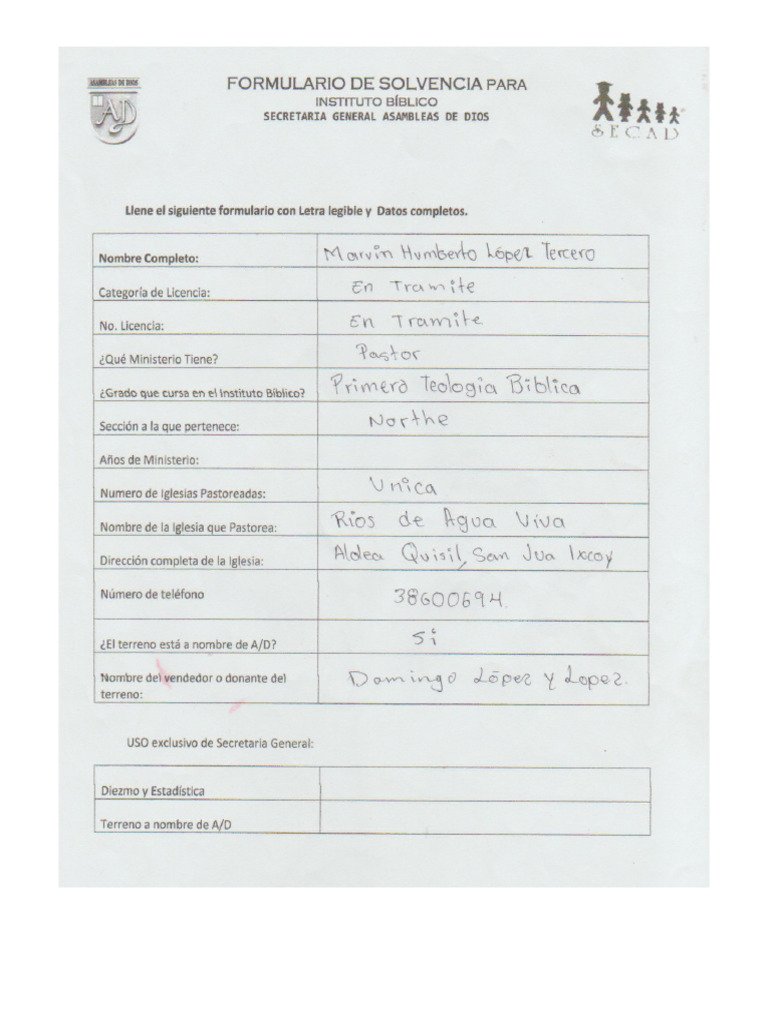 ASAMBLEAS DE DIOS
AD
FORMULARIO DE SOLVENCIA PARA
INSTITUTO BÍBLICO
SECRETARIA GENERAL ASAMBLEAS DE DIOS
SECAD
Llene el siguiente formulario con Letra legible y Datos completos.
Nombre Completo: Marvin Humberto López Tercero
Categoría de Licencia: En Tramite
No. Licencia: En Tramite
¿Qué Ministerio Tiene? Pastor
¿Grado que cursa en el Instituto Bíblico? Primero Teologia Biblica
Sección a la que pertenece: Northe
Años de Ministerio:
Numero de Iglesias Pastoreadas: Unica
Nombre de la Iglesia que Pastorea: Rios de Agua Viva
Dirección completa de la Iglesia: Aldea Quisil, San Jua Ixcoy
Número de teléfono 38600694.
¿El terreno está a nombre de A/D? Si
Nombre del vendedor o donante del
terreno: Domingo López y Lopez.
USO exclusivo de Secretaria General:
Diezmo y Estadística
Terreno a nombre de A/D